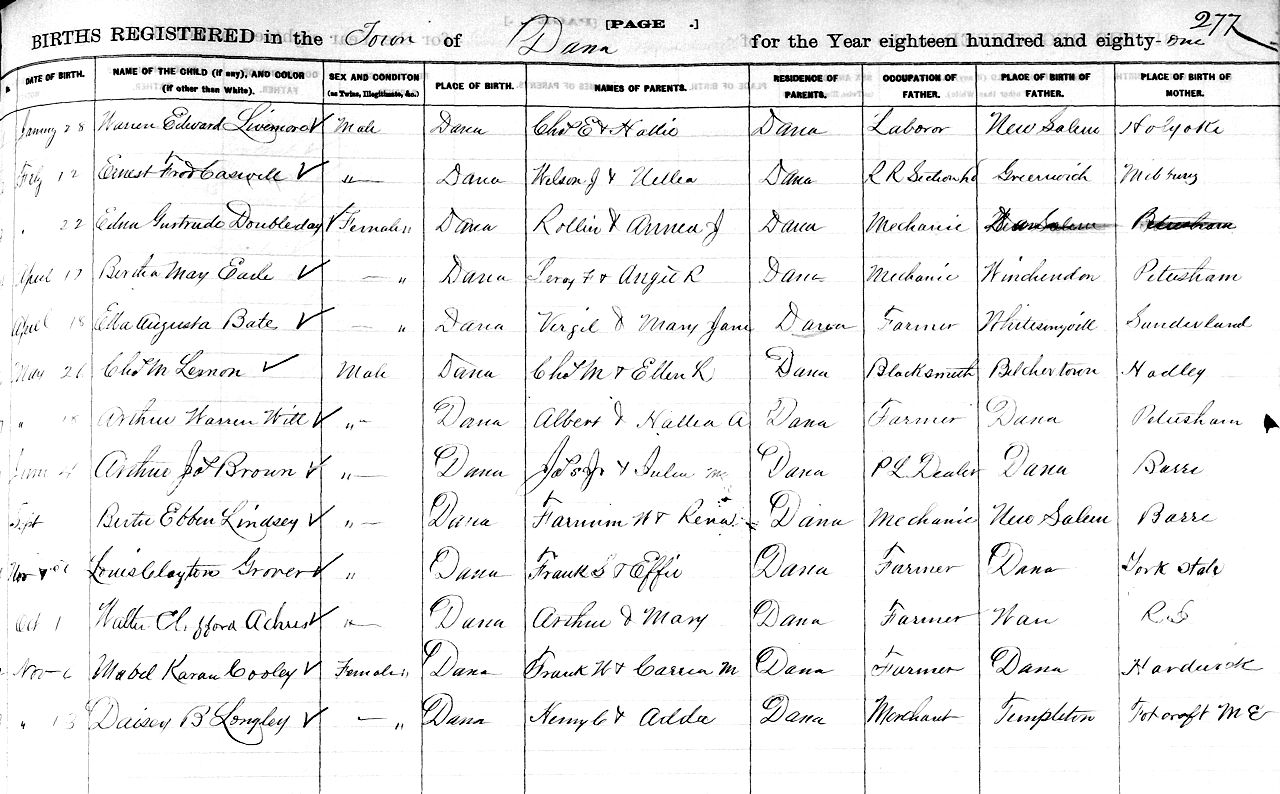 [PAGE .] 277
BIRTHS REGISTERED in the Town of Dana for the Year eighteen hundred and eighty-one
DATE OF BIRTH. NAME OF THE CHILD (if any), AND COLOR (if other than White). SEX AND CONDITON (as Twins, Illegitimate, &c.) PLACE OF BIRTH. NAMES OF PARENTS. RESIDENCE OF PARENTS. OCCUPATION OF FATHER. PLACE OF BIRTH OF FATHER. PLACE OF BIRTH OF MOTHER.
28 Warren Edward Livemore ✓ Male Dana Chas E & Hattie Dana Laboror New Salem Holyoke
12 Ernest Fred Caswell ✓ " Dana Wilson J & Dana R R Greenwich
" 22 Edna Gertrude Doubleday ✓ Female " Dana Rollin & J Dana Mechanic New Salem Petersham
April 17 Bertha May Earle ✓ " Dana Leroy F & Angie R Dana Mechanic Winchendon Petersham
April 18 Etta Augusta Bate ✓ " Dana Virgil & Mary Jane Dana Farmer Sunderland
May 26 Chas M Lemon ✓ Male Dana Chas M & Ellen R Dana Blacksmith Belchertown Hadley
" 18 Arthur Warren Witt ✓ " Dana Albert & Hattie A Dana Farmer Dana Petersham
June 4 Arthur Brown ✓ " Dana & Julia Dana P L Dealer Dana Barre
Sept Bertie Ebben Lindsey ✓ " Dana Farnum W & Rena Dana Mechanic New Salem Barre
Nov Louis Clayton Grover ✓ " Dana Frank S & Effie Dana Farmer Dana York State
Oct 1 Walter Clifford ✓ " Dana Arthur & Mary Dana Farmer Ware R I
Nov 6 Mabel Karan Cooley ✓ Female " Dana Frank W & Carrie M Dana Farmer Dana Hardwick
" 13 Daisey B Longley ✓ " Dana Henry C & Adda Dana Merchant Templeton Foxcroft ME